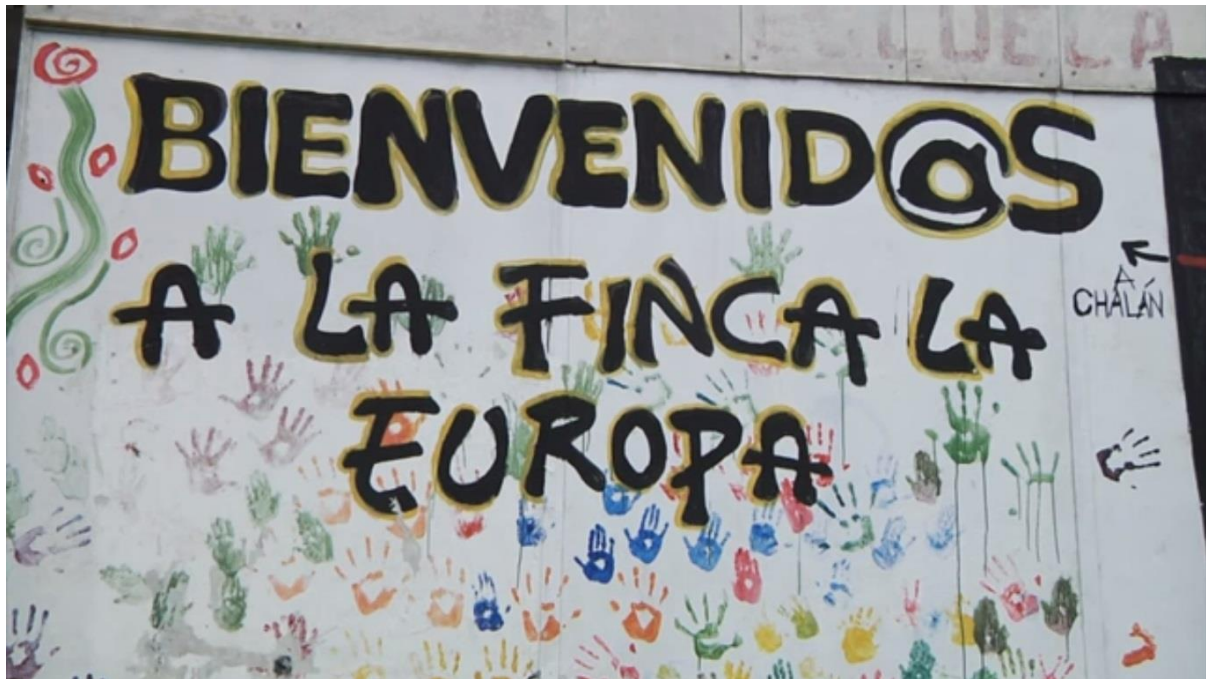 ESCUELA
BIENVENID@S
A LA FINCA LA
EUROPA
A
CHALÁN